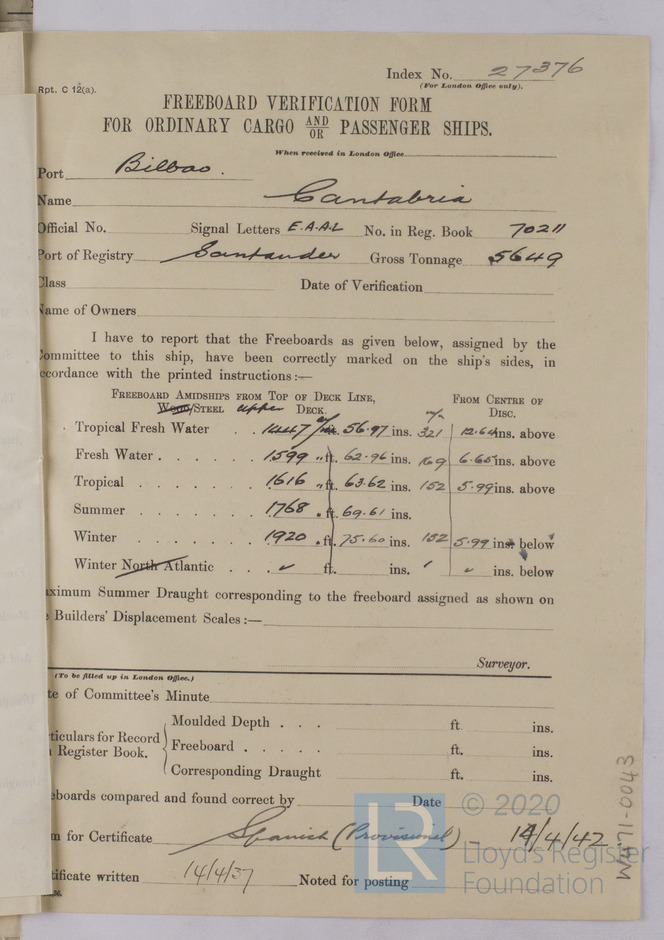 Index No. 27376
(For London Office only).
Rpt. C 12(a).
FREEBOARD VERIFICATION FORM
FOR ORDINARY CARGO AND/OR PASSENGER SHIPS.
When received in London Office
Port Bilbao.
Name Cantabria
Official No. Signal Letters E.A.A.L No. in Reg. Book 70211
Port of Registry Santander Gross Tonnage 5649
Class Date of Verification
Name of Owners
I have to report that the Freeboards as given below, assigned by the
Committee to this ship, have been correctly marked on the ship's sides, in
ccordance with the printed instructions:—
FREEBOARD AMIDSHIPS FROM TOP OF DECK LINE, FROM CENTRE OF
WOOD/STEEL upper DECK. m/m DISC.
Tropical Fresh Water . . 1447 m/m 56.97 ins. 321 12.64 ins. above
Fresh Water . . . . . . 1599 " ft. 62.96 ins. 169 6.65 ins. above
Tropical . . . . . . . 1616 " ft. 63.62 ins. 152 5.99 ins. above
Summer . . . . . . . 1768 " ft. 69.61 ins.
Winter . . . . . . . 1920 " ft. 75.60 ins. 152 5.99 ins. below
Winter North Atlantic . . . ft. ins. ins. below
aximum Summer Draught corresponding to the freeboard assigned as shown on
Builders' Displacement Scales:—
Surveyor.
(To be filled up in London Office.)
te of Committee's Minute
Moulded Depth . . . ft. ins.
ticulars for Record
Register Book.
Freeboard . . . . . ft. ins.
Corresponding Draught ft. ins.
eboards compared and found correct by Date
m for Certificate Spanish (Provisional) - 14/4/42
tificate written 14/4/37 Noted for posting
W471-0043
LR
© 2020
Lloyd's Register
Foundation